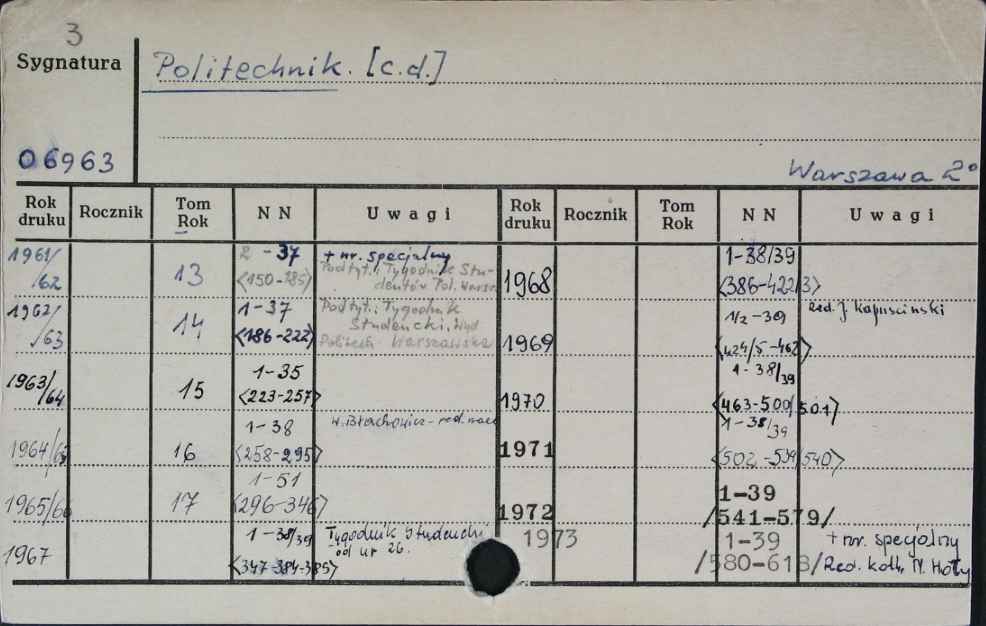 3
Sygnatura
Politechnik. [c.d.]
06963
Warszawa 2°
Rok druku Rocznik Tom Rok NN Uwagi Rok druku Rocznik Tom Rok NN Uwagi
1961/62 13 2-37 + nr. specjalny
<150-185> Podtyt.: Tygodnik Studentów Pol. Warsz
1962/63 14 1-37 Podtyt.: Tygodnik
<186-222> Studencki, Wyd
Politech. Warszawska
1963/64 15 1-35
<223-257>
1964/65 16 1-38 red. nacz
<258-295>
1965/66 17 1-51
<296-346>
1967 1-38/39 Tygodnik Studencki
<347-384-385> od nr 26.
1968 1-38/39
<386-422/3>
1969 1/2-39 Red. J. Kapuściński
<424/5-462>
1970 1-38/39
<463-500/501>
1971 1-38/39
<502-539/540>
1972 1-39
/541-579/
1973 1-39 + nr. specjalny
/580-618/ Red. kol., M. Hoły